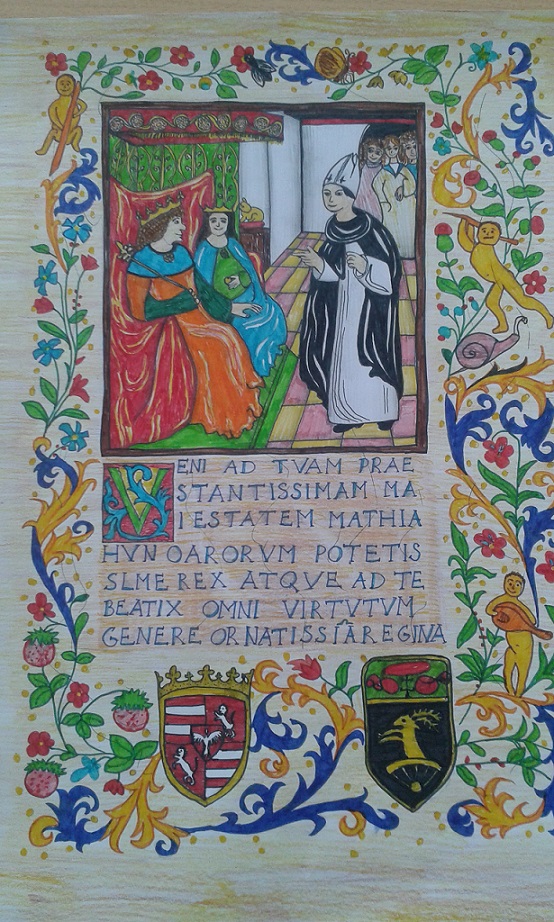 VENI AD TVAM PRAE
STANTISSIMAM MA
IESTATEM MATHIA
HVNOARORVM POTETIS
SLME REX ATQVE AD TE
BEATIX OMNI VIRTVTVM
GENERE ORNATISSIĀ REGINA